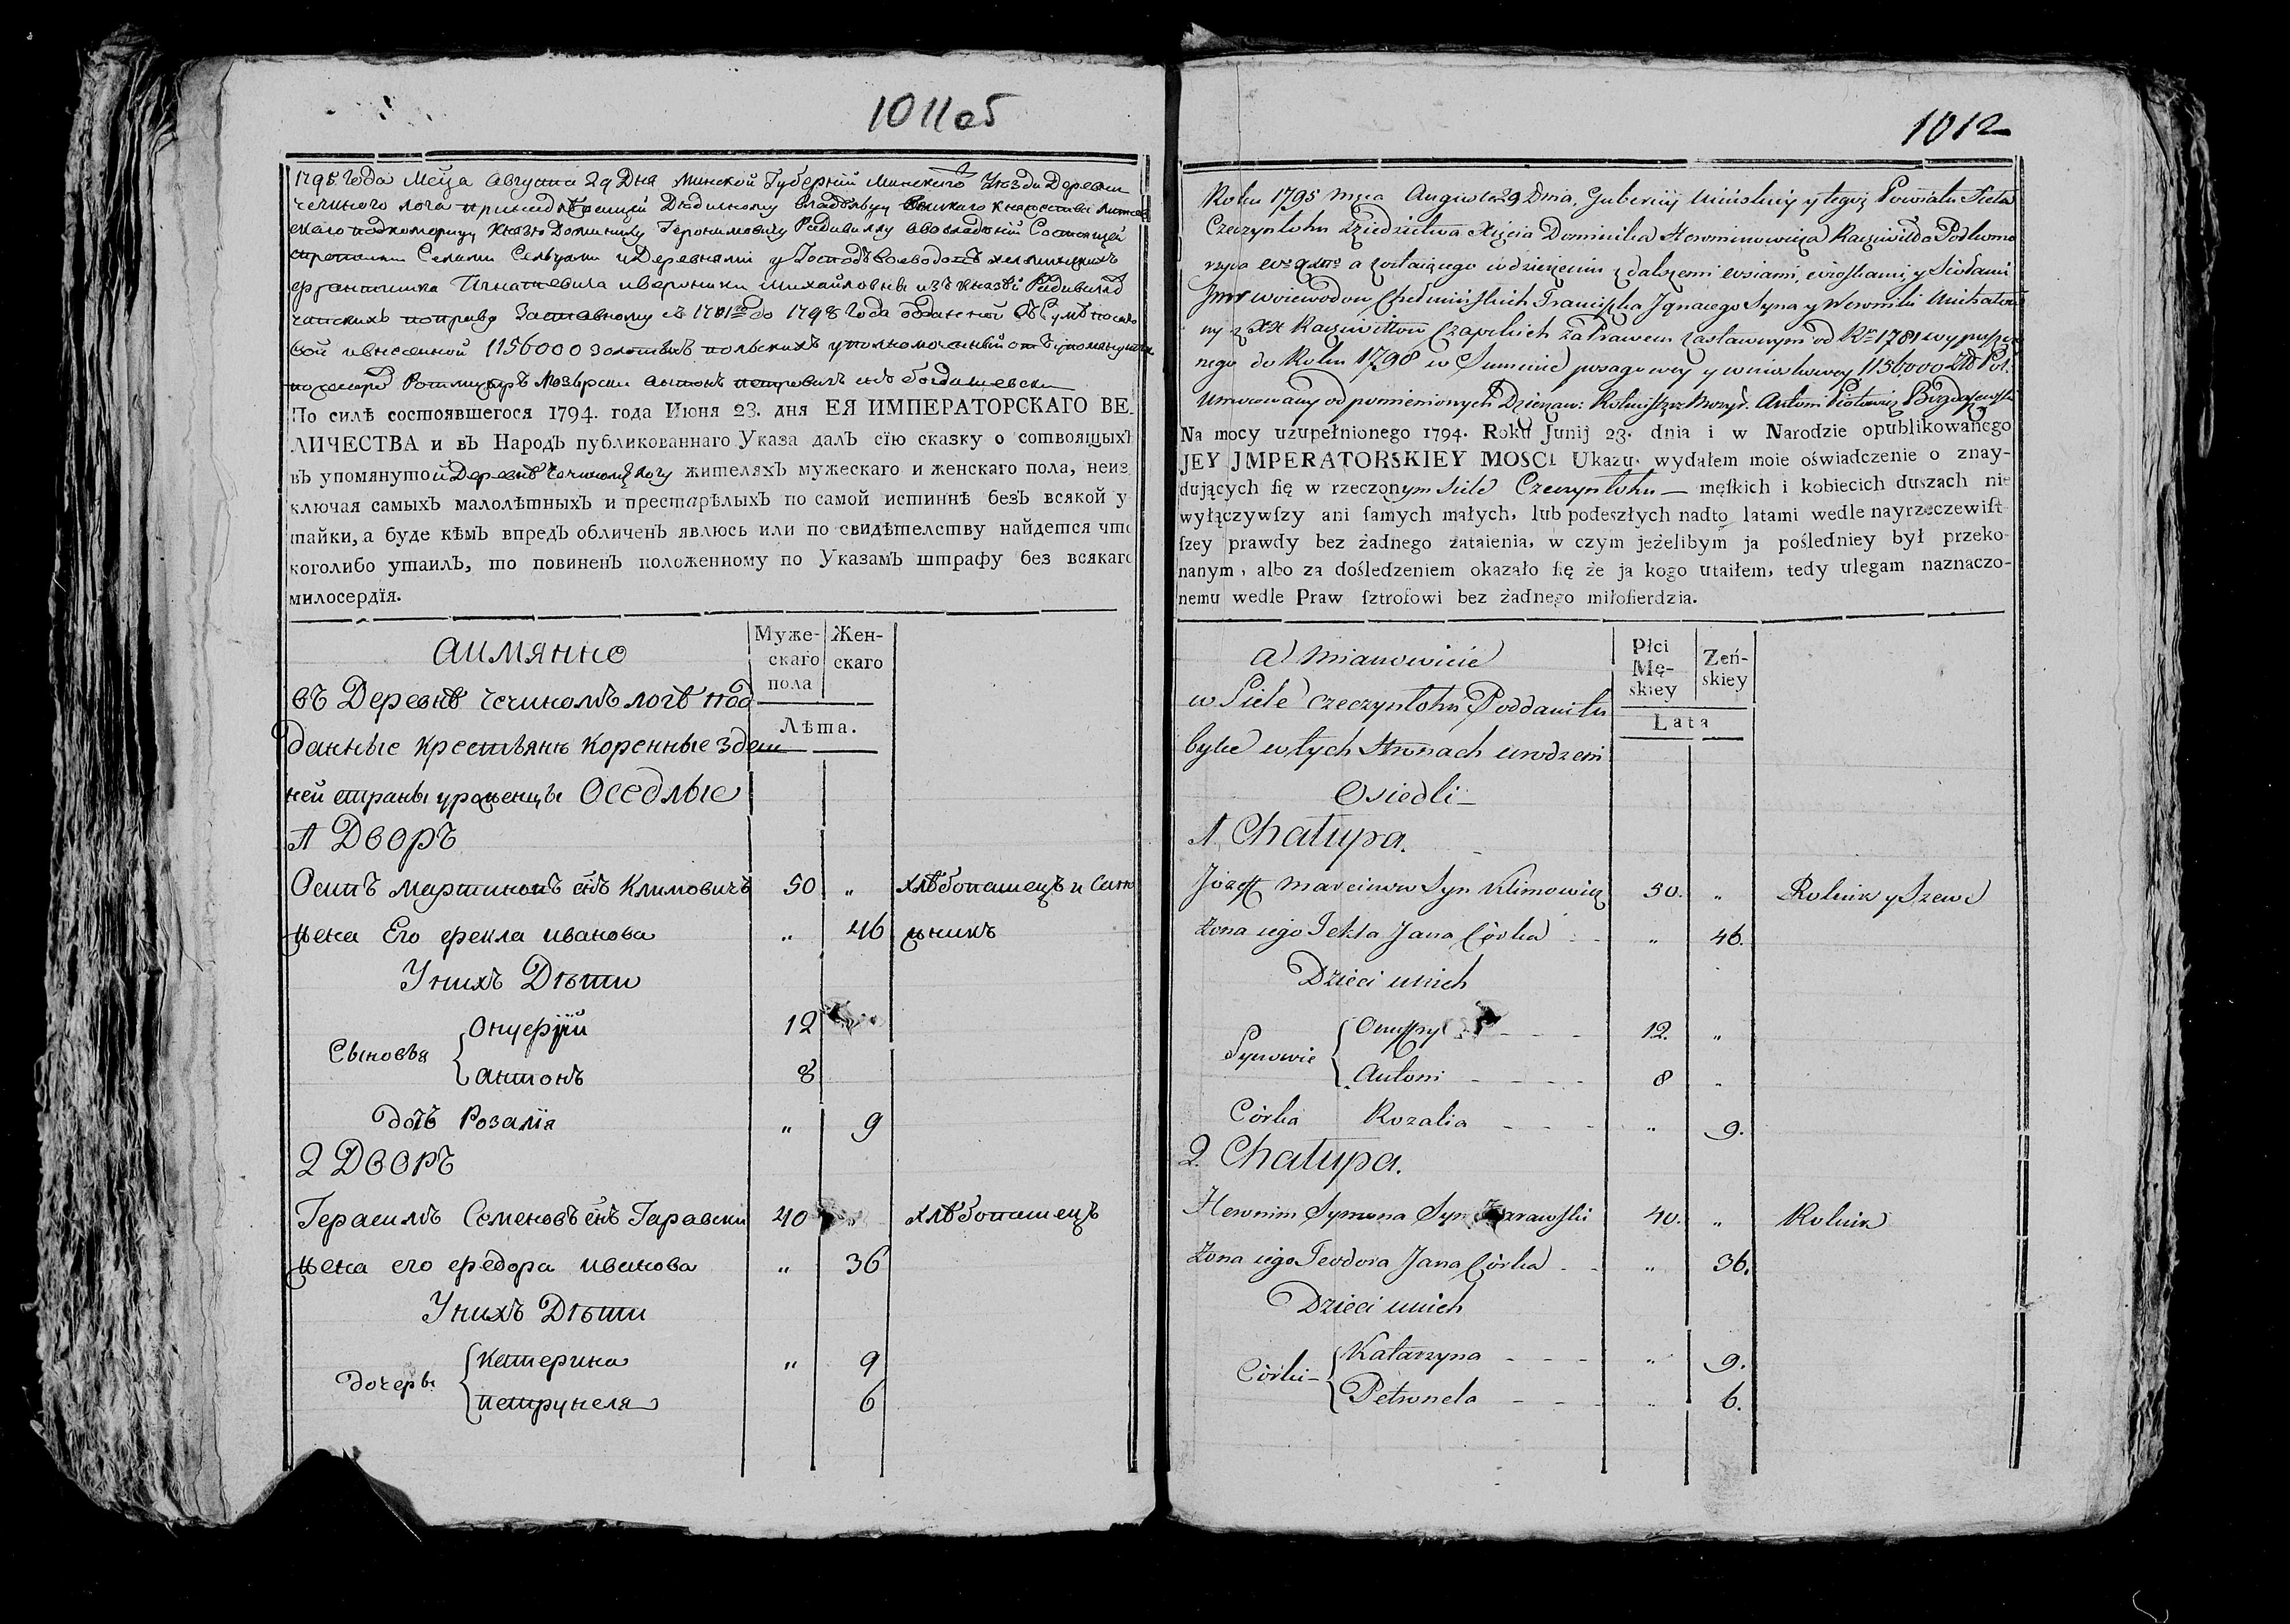 1011об
1795 года Меца Августа 29 Дня Минской Губернїи Минскаго Уезда Деревни
чечиного лога принадлежащей Дедичному владельцу Великаго Княжества Литов
скаго подкоморему Князю Доминику Геронимовичу Радивиллу а во владенїи Состоящей
Селами Сельцами и Деревнями у Господъ воеводовъ хелминскихъ
францишка Игнатьевича и вероники михайловны изъ князей Радивиллов
чапскихъ по праву Заставному съ 1781го до 1798 Года в Сумѣ посаго
вой и внесенной 1156000 золотыхъ польскихъ уполномоченный отъ помянутых
Ротмистръ Мозырски антонъ петровичъ снъ богдашевски
По силѣ состоявшегося 1794. года Июня 23. дня ЕЯ ИМПЕРАТОРСКАГО ВЕ-
ЛИЧЕСТВА и въ Народъ публикованнаго Указа далъ сїю сказку о сотвоящыхъ
въ упомянутой Деревнѣ Чечиномъ логу жителяхъ мужескаго и женскаго пола, неиз
ключая самыхъ малолѣтныхъ и престарѣлыхъ по самой истиннѣ безъ всякой у
тайки, а буде кѣмъ впредъ обличенъ явлюсь или по свидѣтелству найдется что
коголибо утаилъ, то повиненъ положенному по Указамъ штрафу без всякаго
милосердїя.
аимянно
Муже-
скаго
пола
Жен-
скаго
Лѣта.
въ Деревнѣ чечиномъ логѣ под
данные крестьяне коренные здеш
ней страны уроженцы Оседлые
1 Дворъ
Осипъ Мартиновъ снъ Климовичъ 50 „ хлѣбопашецъ и Сапо
жена Его фекла иванова „ 46 жникъ
У нихъ Дѣти
Сыновья
Онуфрїй 12
антонъ 8
дочь Розалїя „ 9
2 Дворъ
Герасимъ Семеновъ снъ Гаравски 40 „ хлѣбопашецъ
жена его федора иванова „ 36
У нихъ Дѣти
дочеры
Катерина „ 9
петрунеля 6
1012
Roku 1795 mca Augusta 29 Dnia, Gubernij Minskiey y tegoż Powiatu Sieła
Czeczynłohu Dziedzictwa Xięcia Dominika Hieronimowicza Radziwiłła Podkomo
rzego a zostaiącego w dzierżeniu z dalszemi wsiami, wioskami y Siołami
Jmw woiewodow Chełmińskich Franciszka Jgnacego Syna y Weroniki Michałow
ny z XX Radziwiłłow Czapskich za Prawem zastawnym od Rku 1781 wypuszczo
nego do Roku 1798 w Summie posagowey y wniesłowey 1156000 Zł Pol.
Umocowany od pomienionych Dzierżaw: Rotmistrz Mozyr. Antoni Piotrowicz Bogdaszewski
Na mocy uzupełnionego 1794. Roku Junij 23. dnia i w Narodzie opublikowanego
JEY JMPERATORSKIEY MOSCI Ukazu. wydałem moie oświadczenie o znay-
dujących ſię w rzeczonym siele Czeczynłohu — męſkich i kobiecich duszach nie
wyłączywſzy ani ſamych małych, lub podeszłych nadto latami wedle nayrzeczewiſt
ſzey prawdy bez żadnego zataienia, w czym jeżelibym ja pośledniey był przeko-
nanym, albo za dośledzeniem okazało ſię że ja kogo utaiłem, tedy ulegam naznaczo-
nemu wedle Praw ſztrofowi bez żadnego miłoſierdzia.
a mianowicie
Płci
Mę-
skiey
Zeń-
skiey
Lata
w Siele Czeczynłohu Poddani tu
bylce w tych stronach urodzeni
Osiedli
1 Chałupa.
Jozeff Marcinow Syn Klimowicz 50. „ Rolnik y Szewc
Żona iego Tekla Jana Córka „ 46.
Dzieci unich
Synowie
Onuffry 12. „
Antoni 8 „
Córka Rozalia „ 9.
2. Chałupa.
Hieronim Symona Syn Harawski 40. „ Rolnik
Żona iego Teodora Jana Córka „ 36.
Dzieci unich
Córki
Katarzyna „ 9.
Petronela „ 6.